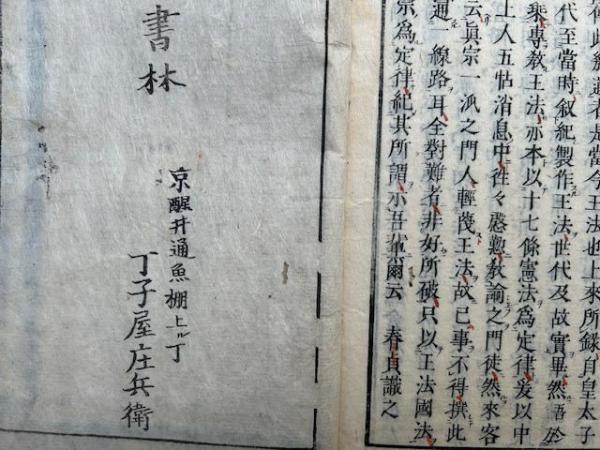 者是當今王法也上來所錄自皇太子
代至當時叙紀製作王法世代及故實畢然吾於
衆專教王法亦本以十七條憲法爲定律爰以中
上人五帖消息中往々慇懃教諭之門徒然來客
云眞宗一派之門人輕蔑王法故已事不得撰此
通一線路耳全對難者非好所破只以王法國法
宗爲定律紀其所謂示吾黨爾云 春貞識之
書林
京醒井通魚棚上ル丁
丁子屋庄兵衛